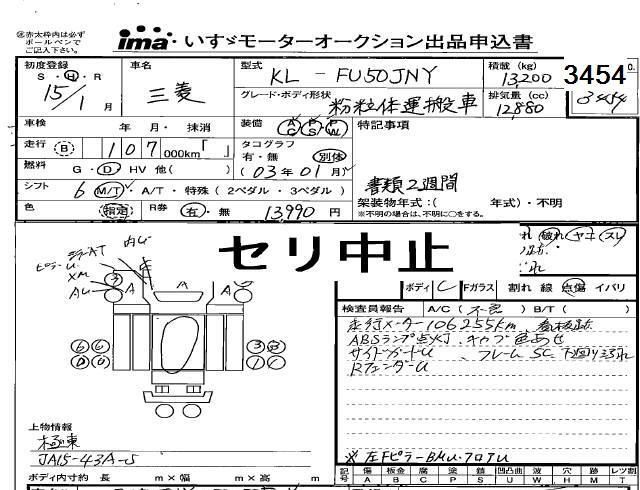 赤太枠内は必ず
ボールペンで
ご記入下さい。
ima・いすゞモーターオークション出品申込書
初度登録 S・H・R 15/1月
車名 三菱
型式 KL-FU50JNY
積載 (kg) 13,200
3454
グレード・ボディ形状 粉粒体運搬車
排気量 (cc) 12,880
3454
車検 年 月・抹消
装備 AC PS PW
特記事項
走行 B 107 000km「 」
タコグラフ 有・無 別体
(03年01月)
燃料 G・D・HV 他( )
書類2週間
シフト 6 M/T・A/T・特殊 (2ペダル・3ペダル)
架装物年式:( 年式)・不明
※不明の場合は、不明に○をする。
色 指定 R券 有・無 13,990 円
セリ中止
れ 破れ ヤニ スレ
ボディ C Fガラス 割れ 線 点傷 イバリ
検査員報告 A/C (不良) B/T ( )
走行メーター106255km、看板跡
ABSランプ点灯、キャブ色あせ
サイドガードU、フレームSC
RフェンダーU
内U
ピラーU
XM
AU
A A A
上物情報
極東
JA15-43A-S
※左FピラーBMU・フロアU
ボディ内寸約 長 m×幅 m×高 m
記号 傷 板金 腐 塗 錆 凹凸曲 波 穴 跡 レツ割
A B C P S U W H M T